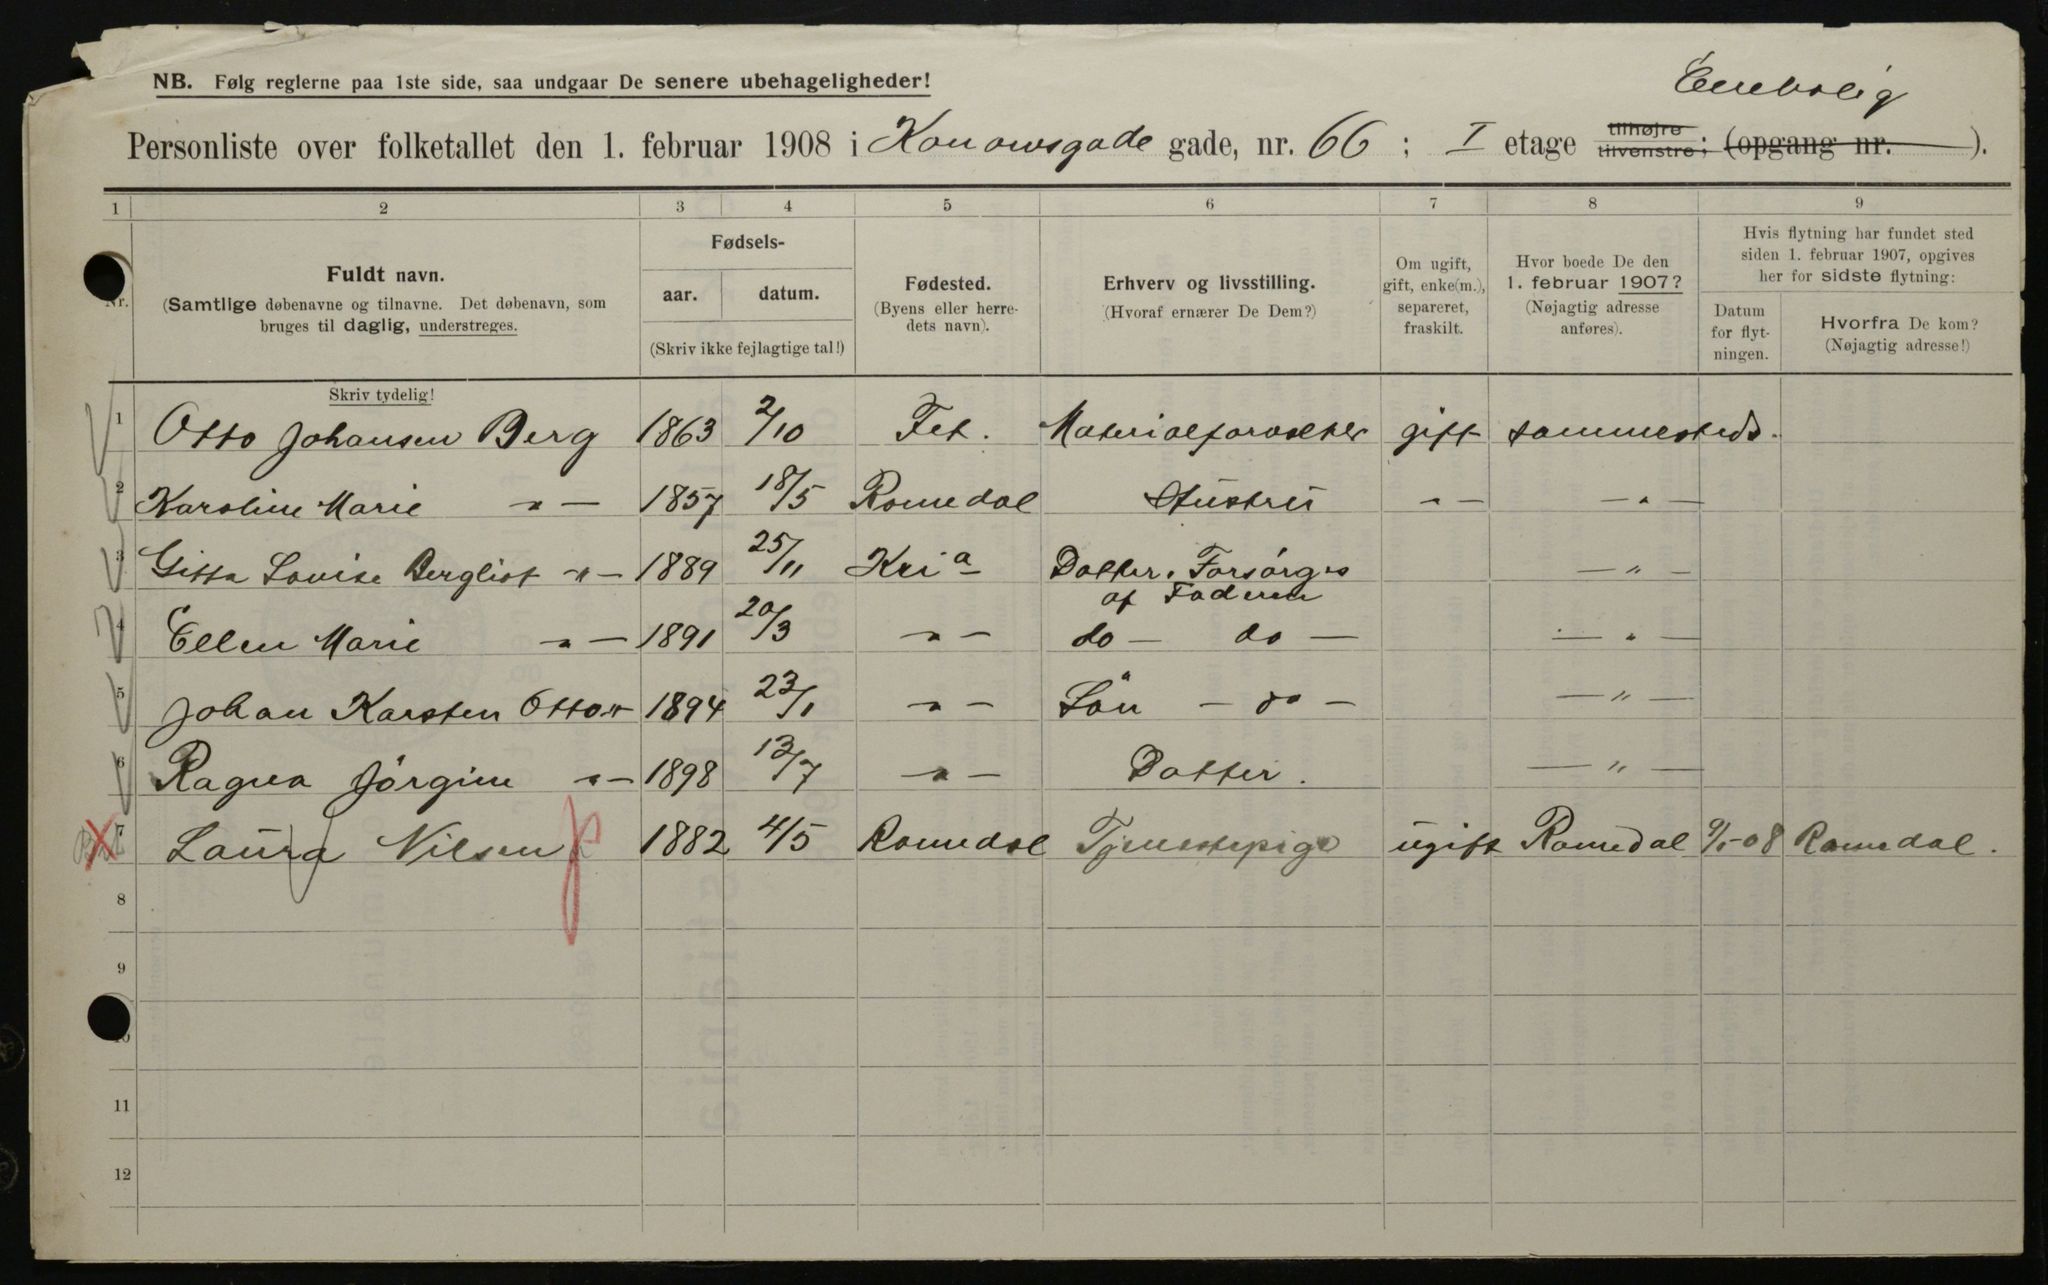 Enebolig
NB. Følg reglerne paa 1ste side, saa undgaar De senere ubehageligheder!
Personliste over folketallet den 1. februar 1908 i Konowsgade gade, nr. 66 ; I etage tilhøjre tilvenstre ; (opgang nr. ).
1 2 3 4 5 6 7 8 9
Nr.
Fuldt navn.
(Samtlige døbenavne og tilnavne. Det døbenavn, som
bruges til daglig, understreges.
Fødsels-
aar. datum.
(Skriv ikke fejlagtige tal!)
Fødested.
(Byens eller herre-
dets navn).
Erhverv og livsstilling.
(Hvoraf ernærer De Dem?)
Om ugift,
gift, enke(m.),
separeret,
fraskilt.
Hvor boede De den
1. februar 1907?
(Nøjagtig adresse
anføres).
Hvis flytning har fundet sted
siden 1. februar 1907, opgives
her for sidste flytning:
Datum
for flyt-
ningen.
Hvorfra De kom?
(Nøjagtig adresse!)
Skriv tydelig!
1 Otto Johansen Berg 1863 2/10 Fet. Materialforvalter gift sammesteds.
2 Karoline Marie -"- 1857 18/5 Romedal Hustru -"- -"-
3 Gitta Louise Bergliot -"- 1889 25/11 Kria Datter. Forsørges -"-
af Faderen
4 Ellen Marie -"- 1891 20/3 -"- do - do - -"-
5 Johan Karsten Otto -"- 1894 23/1 -"- Sön - do - -"-
6 Ragna Jörgine -"- 1898 13/7 -"- Datter. -"-
7 Laura Nilsen 1882 4/5 Romedal Tjenestepige ugift Romedal 9/1-08 Romedal.
8
9
10
11
12